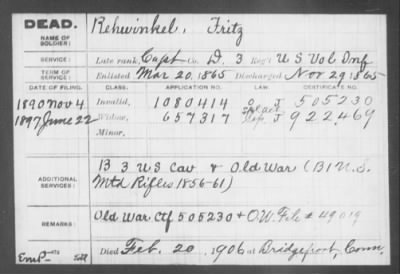 DEAD.
NAME OF SOLDIER: Rehwinkel, Fritz
SERVICE: Late rank, Capt Co. D, 3 Reg't U S Vol Inf
TERM OF SERVICE: Enlisted Mar 20, 1865 Discharged Nov 29 1865
DATE OF FILING. CLASS. APPLICATION NO. LAW. CERTIFICATE NO.
1890 Nov 4 Invalid, 1080414 505230
1897 June 22 Widow, 657317 922469
Minor,
ADDITIONAL SERVICES: B 3 U S Cav & Old War (B 1 U.S.
Mtd Rifles 1856-61)
REMARKS: Old War Ctf 505230 & O.W. File # 49019
Died Feb. 20, 1906 at Bridgeport, Conn.